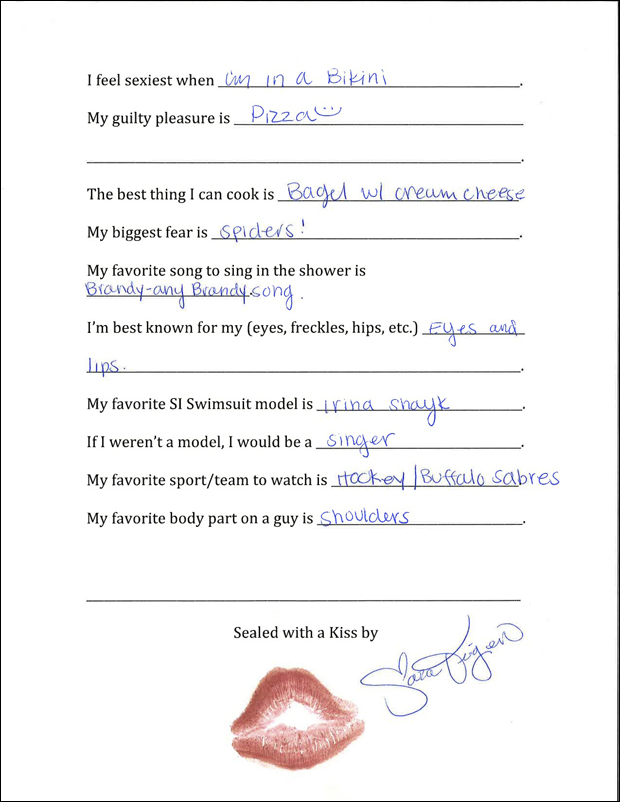 I feel sexiest when i'm in a Bikini.
My guilty pleasure is Pizza
.
The best thing I can cook is Bagel w/ cream cheese
My biggest fear is spiders!.
My favorite song to sing in the shower is
Brandy-any Brandy song.
I'm best known for my (eyes, freckles, hips, etc.) Eyes and
lips..
My favorite SI Swimsuit model is irina shayk.
If I weren't a model, I would be a singer.
My favorite sport/team to watch is Hockey/Buffalo Sabres
My favorite body part on a guy is shoulders.
Sealed with a Kiss by
Sara